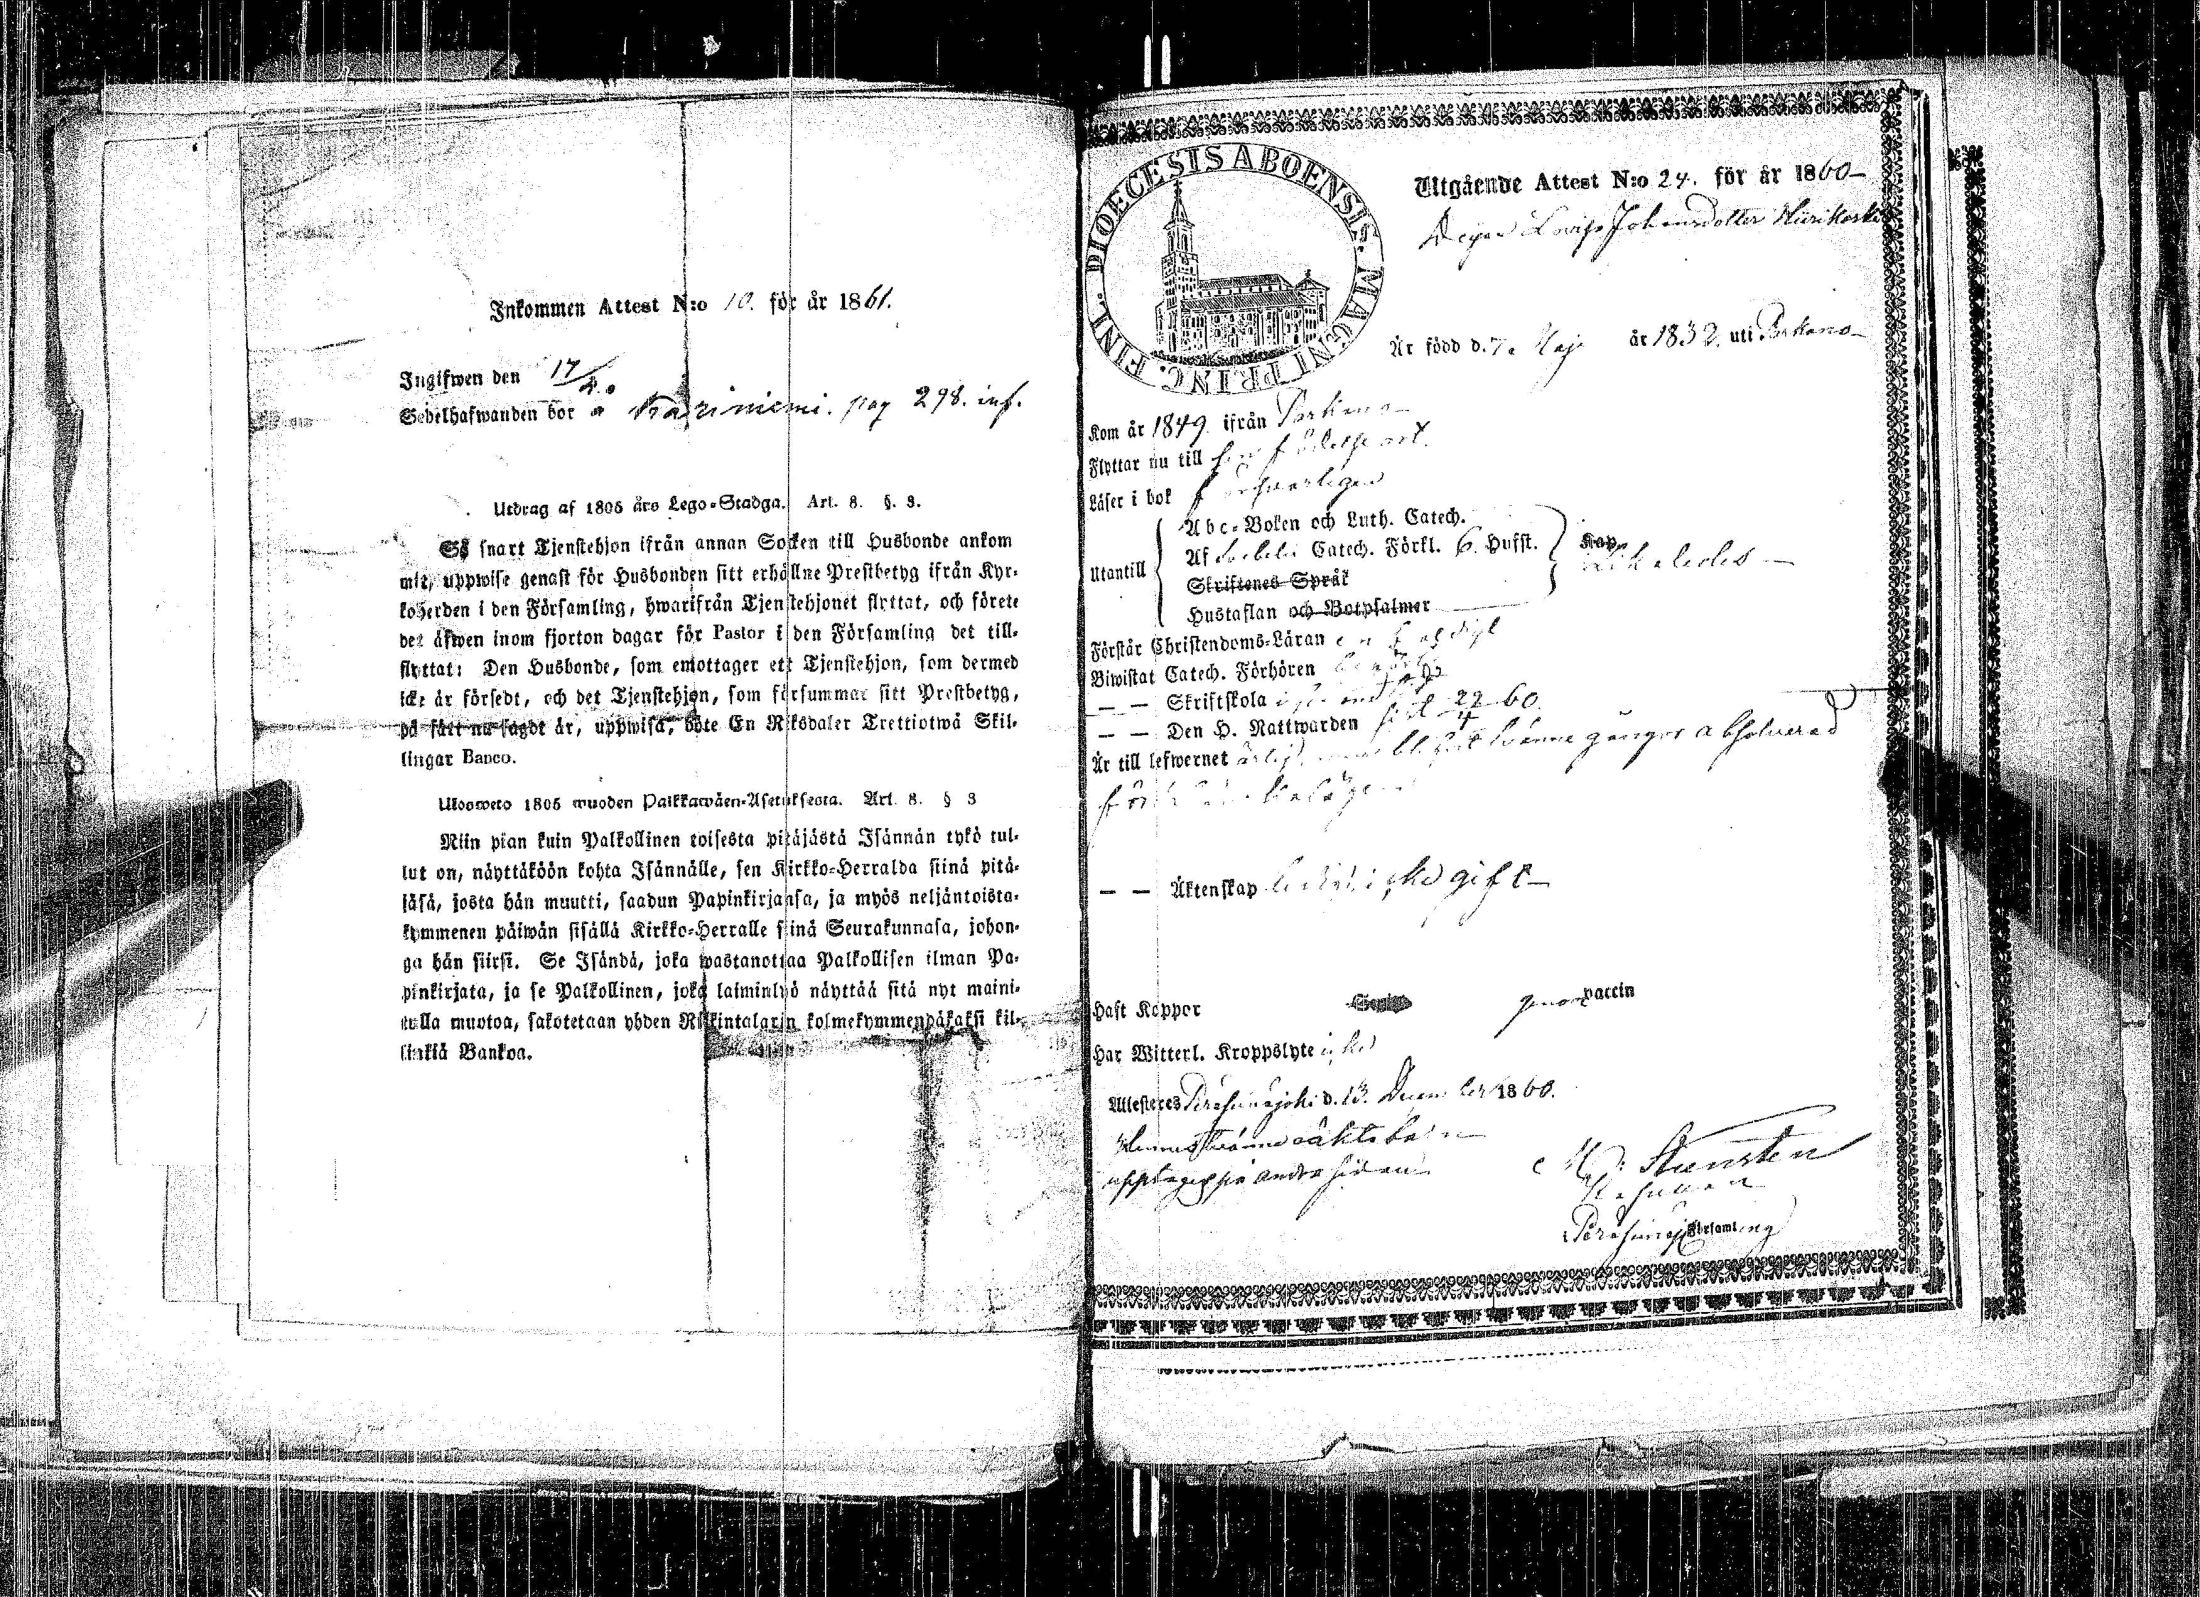 Inkommen Attest N:o 10. för år 1861.
Ingifwen den 17/2.
Sedelhafwanden bor a Kariniemi. pag 298. inf.
Utdrag af 1805 års Lego-Stadga. Art. 8. §. 3.
Så snart Tjenstehjon ifrån annan Socken till Husbonde ankom
mit, uppwise genast för Husbonden sitt erhållne Prestbetyg ifrån Kyr-
koherden i den Församling, hwarifrån Tjenstehjonet flyttat, och förete
det äfwen inom fjorton dagar för Pastor i den Församling det till-
flyttat: Den Husbonde, som emottager ett Tjenstehjon, som dermed
icke är försedt, och det Tjenstehjon, som försummar sitt Prestbetyg,
på sätt nu sagdt är, uppwisa, böte En Riksdaler Trettiotwå Skil-
lingar Banco.
Ulosweto 1805 wuoden Palkkawäen-Asetuksesta. Art. 8. § 3
Niin pian kuin Palkollinen toisesta pitäjästä Isännän tykö tul-
lut on, näyttäköön kohta Isännälle, sen Kirkko-Herralda siinä pitä-
jäsä, josta hän muutti, saadun Papinkirjansa, ja myös neljäntoista-
kymmenen päiwän sisällä Kirkko-Herralle siinä Seurakunnasa, johon-
ga hän siirsi. Se Isändä, joka wastanottaa Palkollisen ilman Pa-
pinkirjata, ja se Palkollinen, joka laiminlyö näyttää sitä nyt maini-
tulla muotoa, sakotetaan yhden Riikintalarin kolmekymmendäkaksi kil-
linkiä Bankoa.
DIOECESIS ABOENSIS. MAGNI PRINC. FINL.
Utgående Attest N:o 24. för år 1860
Lovisa Johansdotter
Är född d. 7. Maj år 1832. uti Parkano
Kom år 1849. ifrån Parkano
Flyttar nu till sin födelse ort.
Läser i bok försvarligen
Utantill
Abc-Boken och Luth. Catech.
Af Catech. Förkl. 6. Hufst.
Skriftenes Språk
Hustaflan och Botpsalmer
Förstår Christendoms-Läran enfaldigt
Biwistat Catech. Förhören
— — Skriftskola
— — Den H. Nattwarden sist 22/4 60.
Är till lefwernet ärlig, men blifvit tvänne gånger absolverad
för
— — Äktenskap icke gift
Haft Koppor vaccin
Har Witterl. Kroppslyte icke
Attesteras Peräseinäjoki d. 13. December 1860.
Hennes tvänne oäkta barn
upptagas på andra sidan
Församling